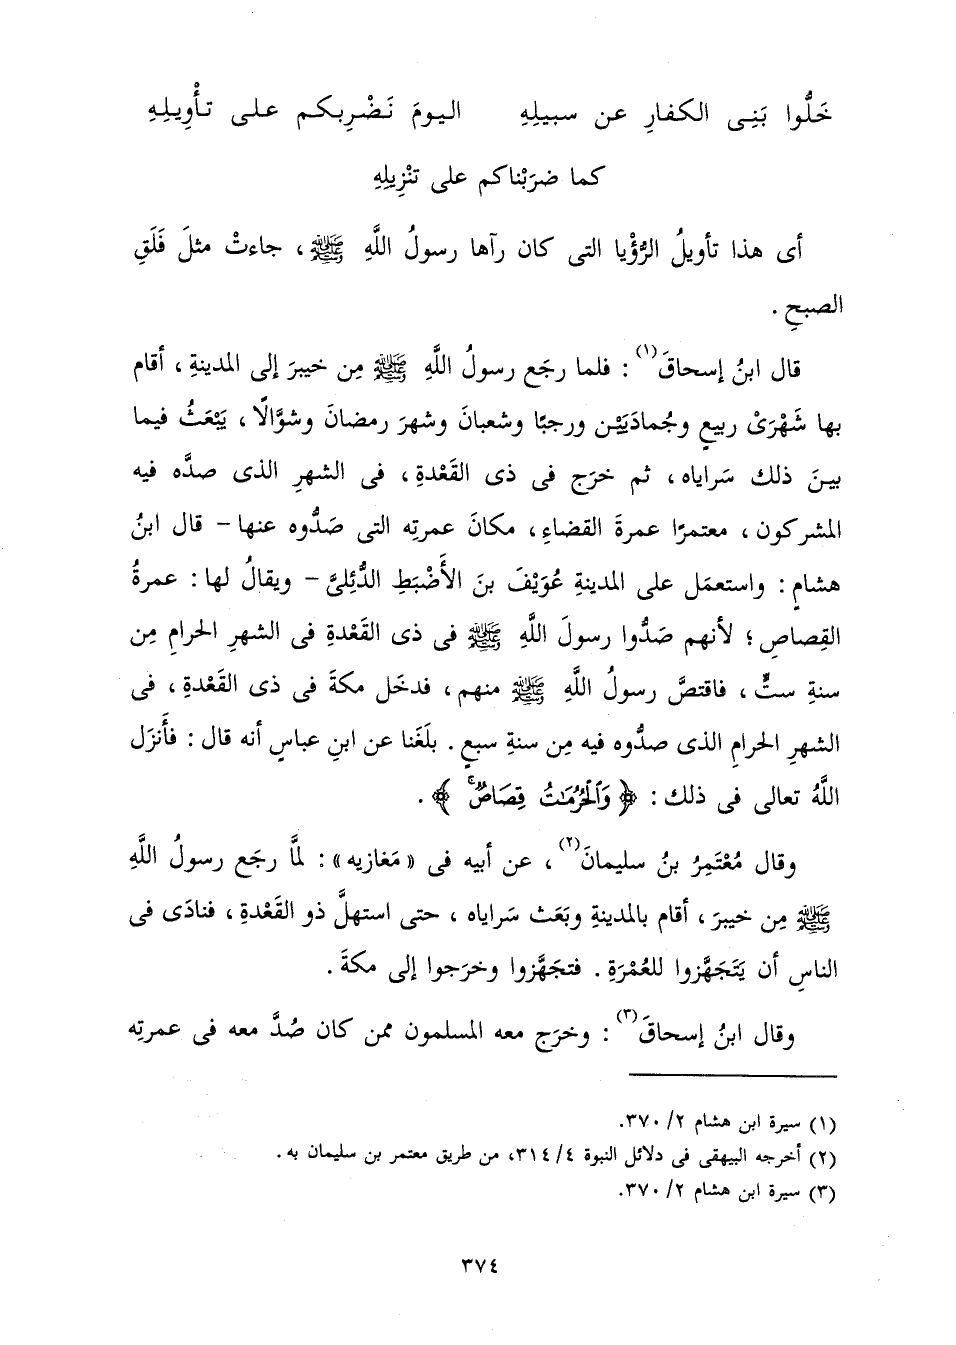 خَلُّوا بَنِى الكفارِ عن سبيلِهِ اليومَ نَضْرِبكم على تأْوِيلِهِ
كما ضرَبْناكم على تنْزِيلِهِ
أى هذا تأويلُ الرُّؤْيا التى كان رآها رسولُ اللَّهِ ﷺ، جاءتْ مثلَ فَلَقِ
الصبحِ .
قال ابنُ إسحاقَ(١) : فلما رجَع رسولُ اللَّهِ ﷺ مِن خيبرَ إلى المدينةِ ، أقام
بها شَهْرَىْ ربيعٍ وجُمادَيَيْن ورجبًا وشعبانَ وشهرَ رمضانَ وشوَّالًا ، يَبْعَثُ فيما
بينَ ذلك سَراياه ، ثم خرَج فى ذى القَعْدةِ ، فى الشهرِ الذى صدَّه فيه
المشركون ، معتمرًا عمرةَ القضاءِ ، مكانَ عمرتِه التى صَدُّوه عنها - قال ابنُ
هشامٍ : واستعمَل على المدينةِ عُوَيْفَ بنَ الأَضْبَطِ الدُّئِلىَّ - ويقالُ لها : عمرةُ
القِصاصِ ؛ لأنهم صَدُّوا رسولَ اللَّهِ ﷺ فى ذى القَعْدةِ فى الشهرِ الحرامِ مِن
سنةِ ستٍّ ، فاقتصَّ رسولُ اللَّهِ ﷺ منهم ، فدخَل مكةَ فى ذى القَعْدةِ ، فى
الشهرِ الحرامِ الذى صدُّوه فيه مِن سنةِ سبعٍ . بلَغَنا عن ابنِ عباسٍ أنه قال : فأَنزَل
اللَّهُ تعالى فى ذلك : ﴿ وَٱلْحُرُمَٰتُ قِصَاصٌۚ ﴾ .
وقال مُعْتَمِرُ بنُ سليمانَ(٢) ، عن أبيه فى « مَغازيه » : لمَّا رجَع رسولُ اللَّهِ
ﷺ مِن خيبرَ ، أقام بالمدينةِ وبَعَث سَراياه ، حتى استهلَّ ذو القَعْدةِ ، فنادَى فى
الناسِ أن يَتَجَهَّزوا للعُمْرَةِ . فتجَهَّزوا وخرَجوا إلى مكةَ .
وقال ابنُ إسحاقَ(٣) : وخرَج معه المسلمون ممن كان صُدَّ معه فى عمرتِه
(١) سيرة ابن هشام ٢/ ٣٧٠.
(٢) أخرجه البيهقى فى دلائل النبوة ٤/ ٣١٤، من طريق معتمر بن سليمان به .
(٣) سيرة ابن هشام ٢/ ٣٧٠.
٣٧٤